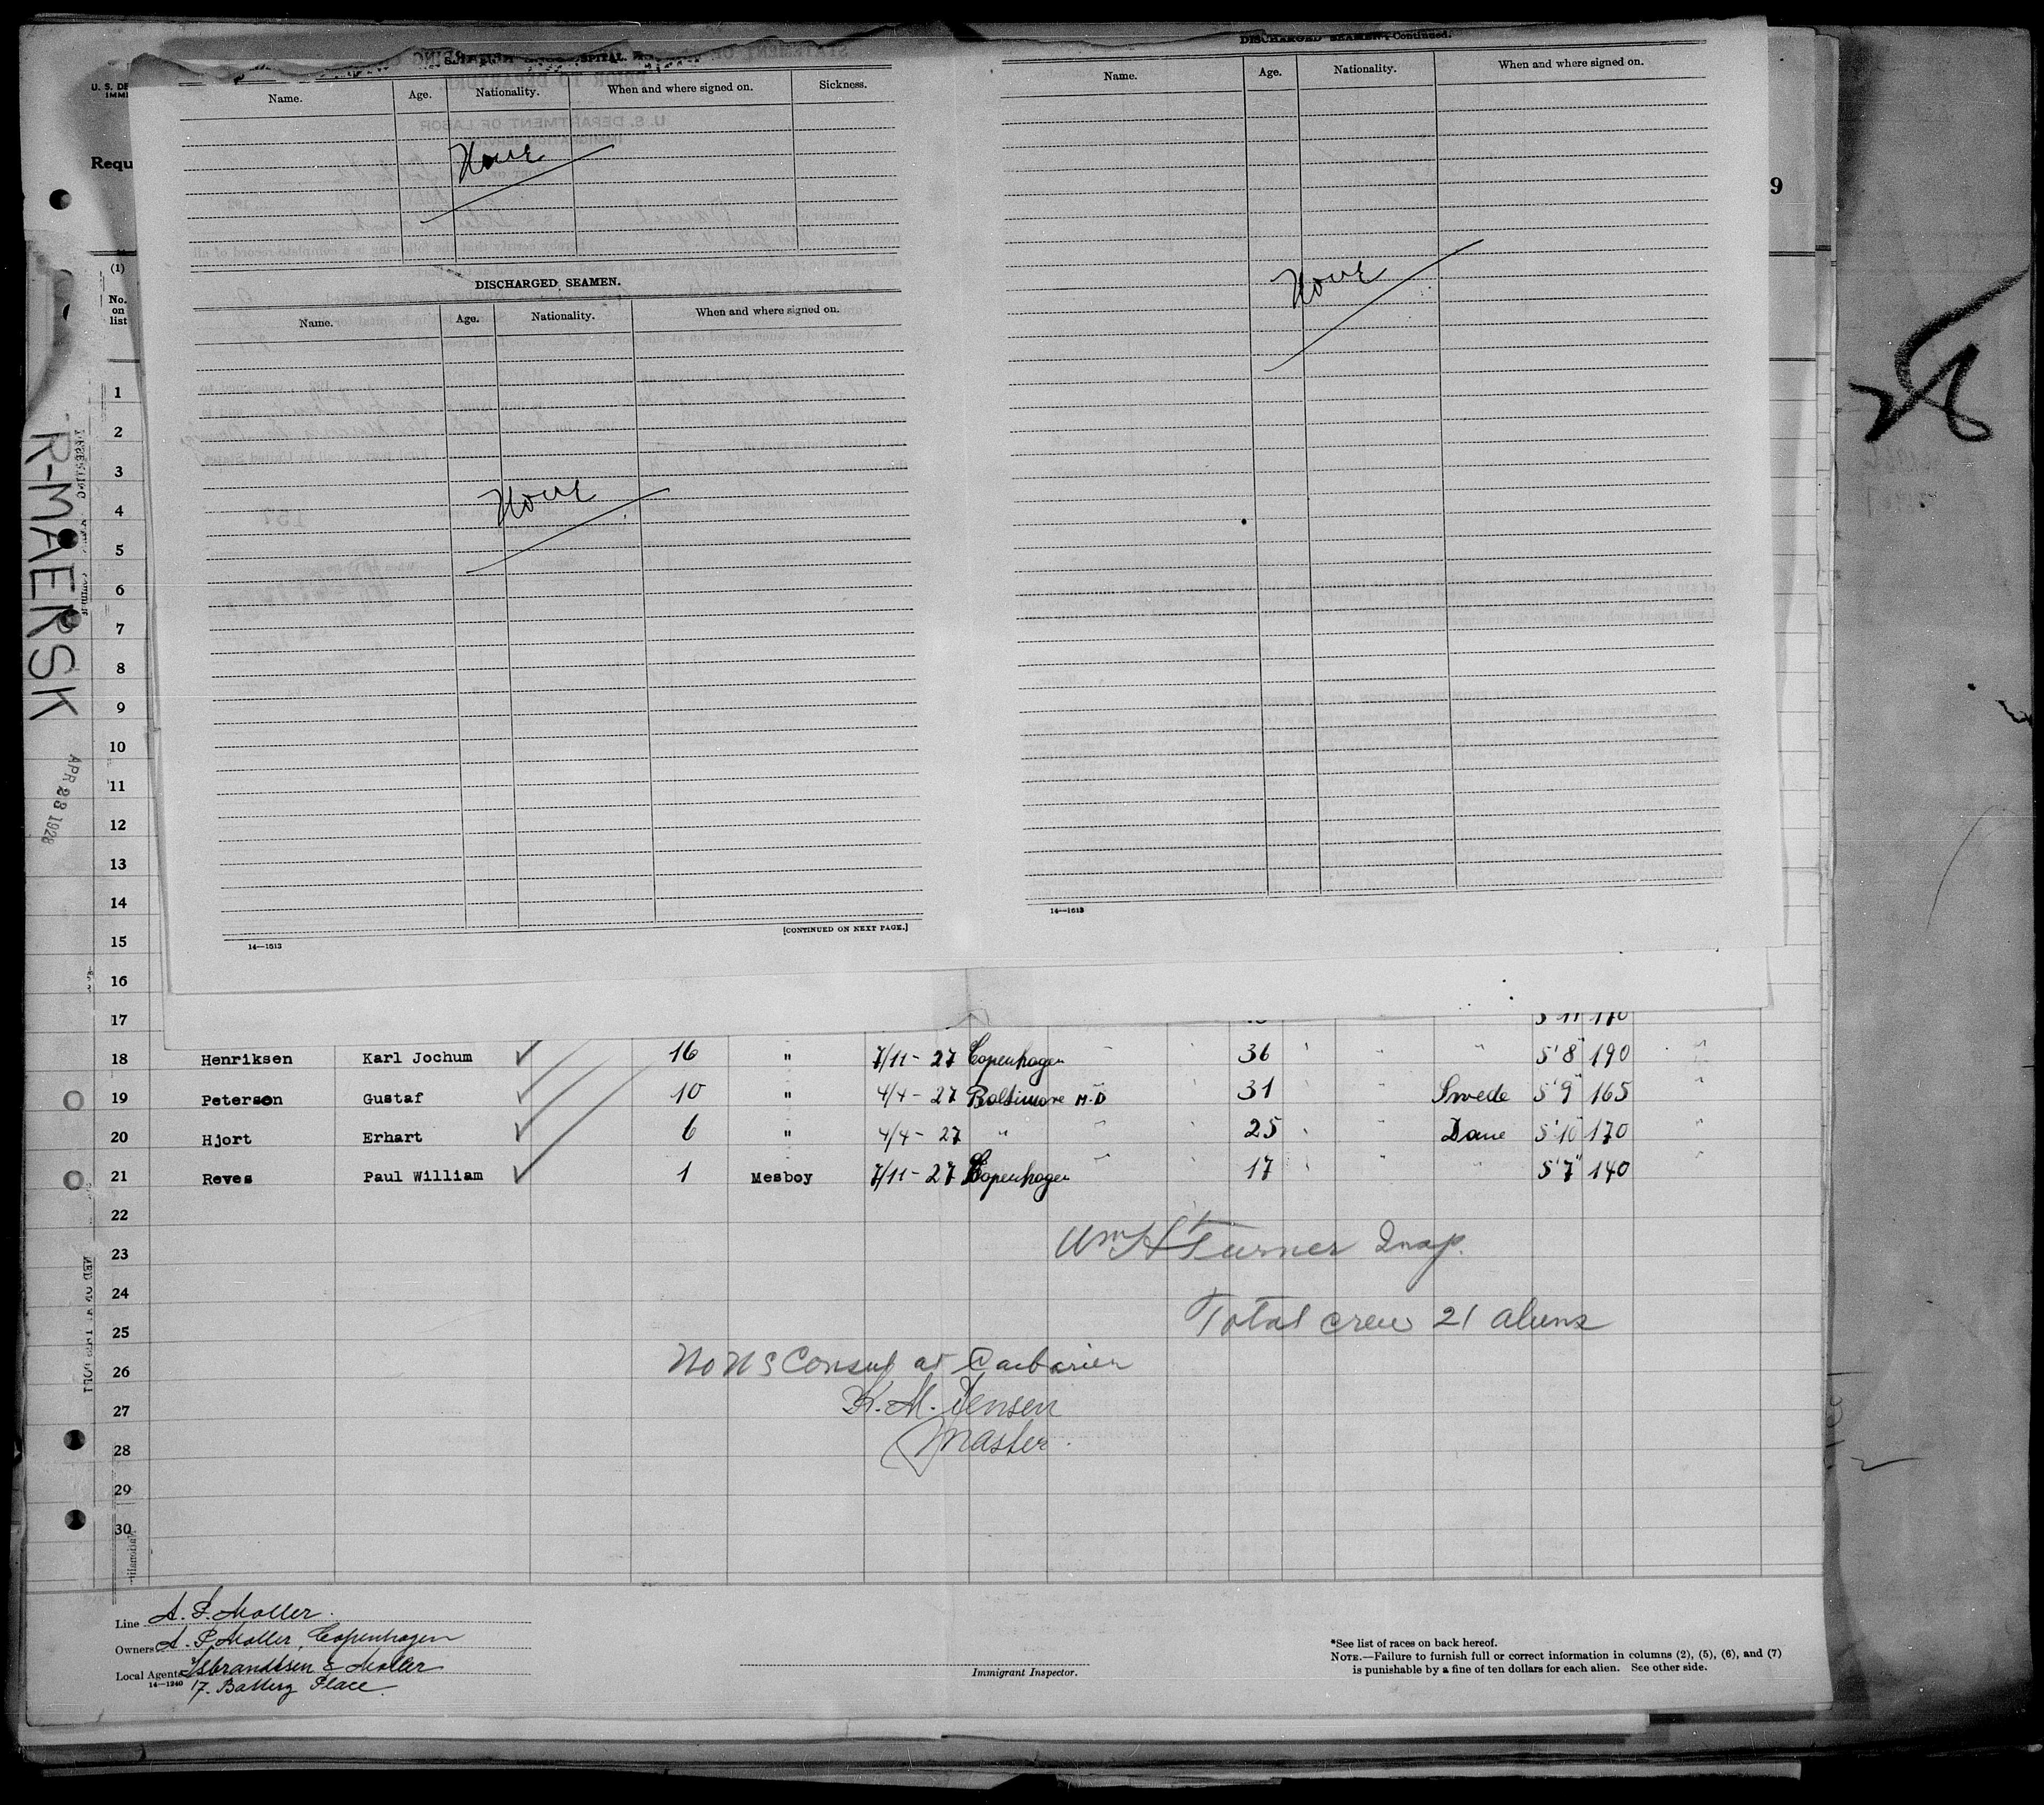 Name. Age. Nationality. When and where signed on. Sickness.
None
DISCHARGED SEAMEN.
Name. Age. Nationality. When and where signed on.
None
14—1613
[CONTINUED ON NEXT PAGE.]
DISCHARGED SEAMEN—Continued.
Name. Age. Nationality. When and where signed on.
None
14—1613
9
28
U. S. DE
IMMI
Requ
(1)
No. on list
R-MAERSK
APR 28 1928
1
2
3
4
5
6
7
8
9
10
11
12
13
14
15
16
17 5 11 170
18 Henriksen Karl Jochum 16 " 7/11-27 Copenhagen " " 36 " " " 5'8" 190 "
19 Peterson Gustaf 10 " 4/4-27 Baltimore M.D " " 31 " " Swede 5'9" 165 "
20 Hjort Erhart 6 " 4/4-27 " " " 25 " " Dane 5'10" 170 "
21 Reves Paul William 1 Mesboy 7/11-27 Copenhagen " " 17 " " " 5'7" 140 "
22
23 Wm H Turner Insp.
24
25 Total crew 21 aliens
26 No US Consul at Caibarien
27 K. M. Jensen
28 Master.
29
30
Line A. P. Moller.
Owners A. P. Moller, Copenhagen
Local Agents Isbrandtsen & Moller
14—1240 17. Battery Place.
Immigrant Inspector.
*See list of races on back hereof.
NOTE.—Failure to furnish full or correct information in columns (2), (5), (6), and (7)
is punishable by a fine of ten dollars for each alien. See other side.